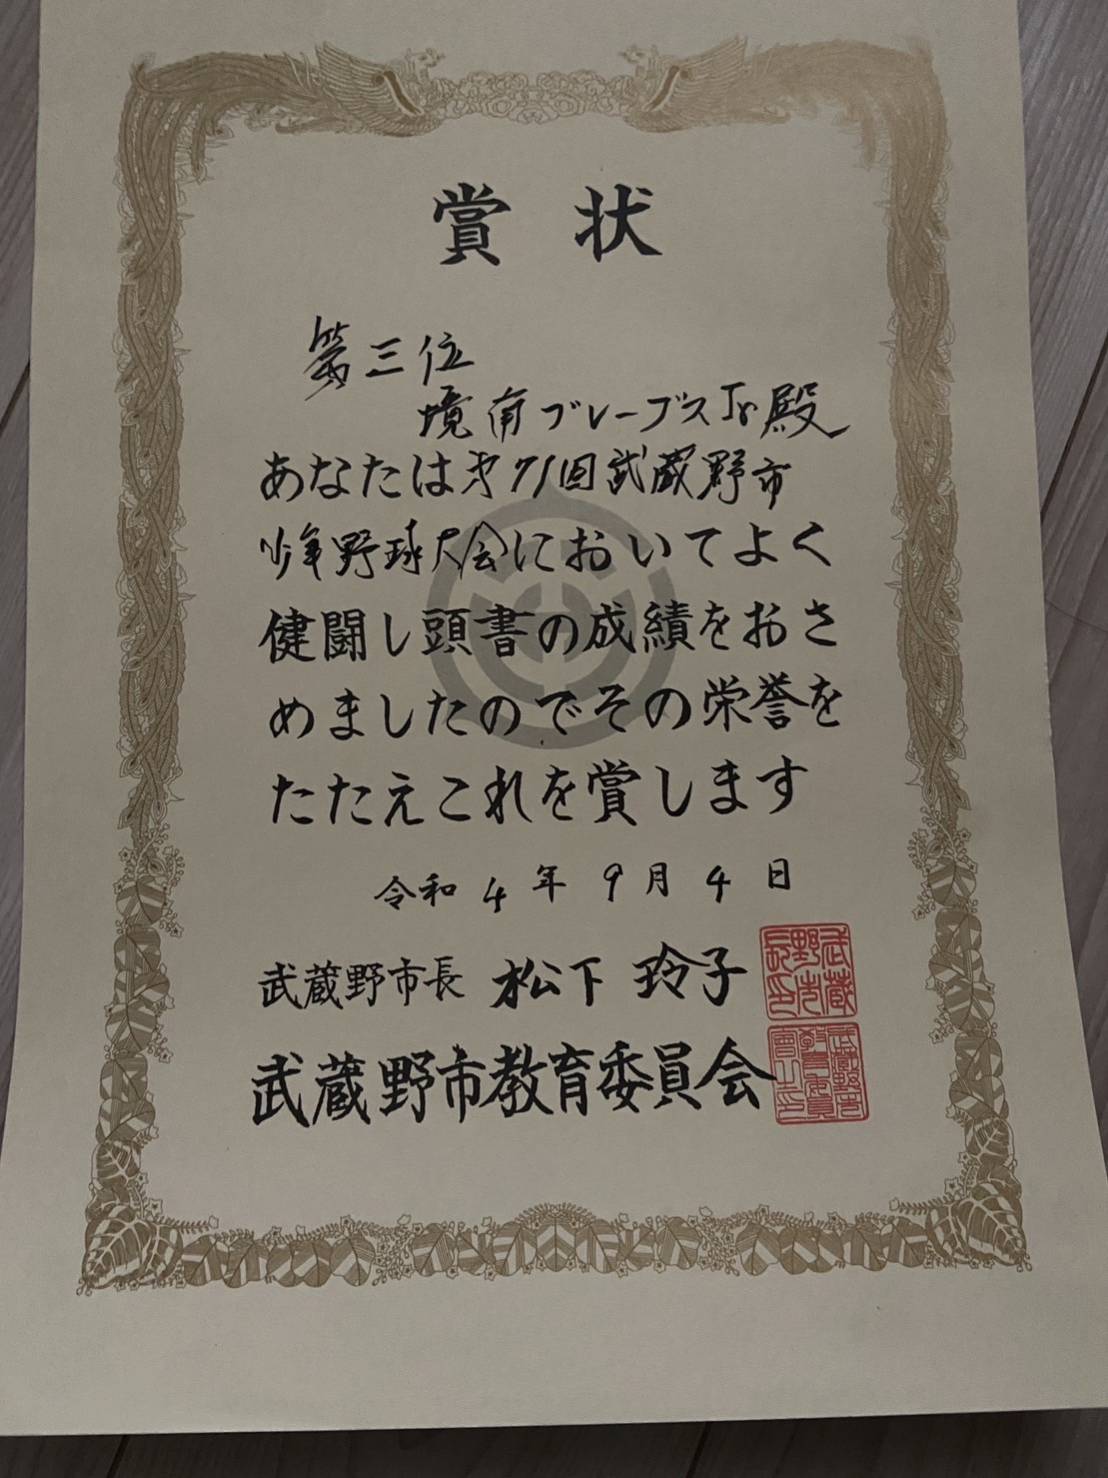 賞状
第三位
境南ブレーブスJr殿
あなたは才71回武蔵野市
少年野球大会においてよく
健闘し頭書の成績をおさ
めましたのでその栄誉を
たたえこれを賞します
令和4年9月4日
武蔵野市長 松下 玲子
武蔵野市長之印
武蔵野市教育委員会